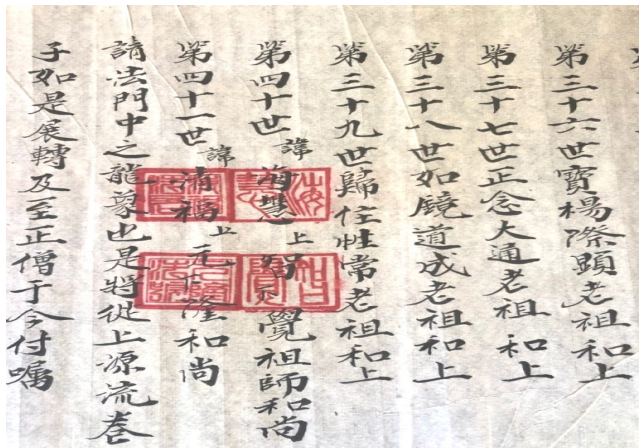 第三十六世寶楊際顕老祖和上
第三十七世正念大通老祖和上
第三十八世如鏡道成老祖和上
第三十九世歸住性常老祖和上
第四十世諱海㙉上智下覺祖師和尚
第四十一世諱清福上元下隆和尚
請法門中之龍象也是將從上源流卷
子如是展轉及至正僧于今付囑